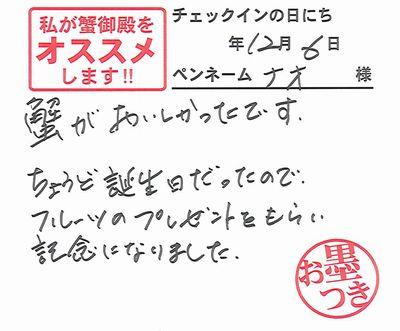 私が蟹御殿を
オススメ
します!!
チェックインの日にち
年12月6日
ペンネーム ナオ 様
蟹がおいしかったです.
ちょうど誕生日だったので.
フルーツのプレゼントをもらい
記念になりました.
お墨つき